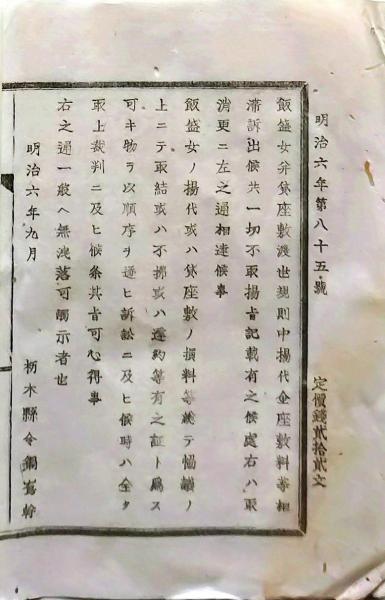 明治六年第八十五號
定價錢貳拾貳文
飯盛女并貸座敷渡世規則中揚代金座敷料等相
滞訴出候共一切不取揚旨記載有之候處右ハ取
消更ニ左之通相達候事
飯盛女ノ揚代或ハ貸座敷ノ損料等総テ協議ノ
上ニテ取結或ハ不拂或ハ違約等有之証ト爲ス
可キ物ヲ以順序ヲ逐ヒ訴訟ニ及ヒ候時ハ全ク
取上裁判ニ及ヒ候条其旨可心得事
右之通一般ヘ無洩落可觸示者也
明治六年九月
栃木縣令鍋島幹